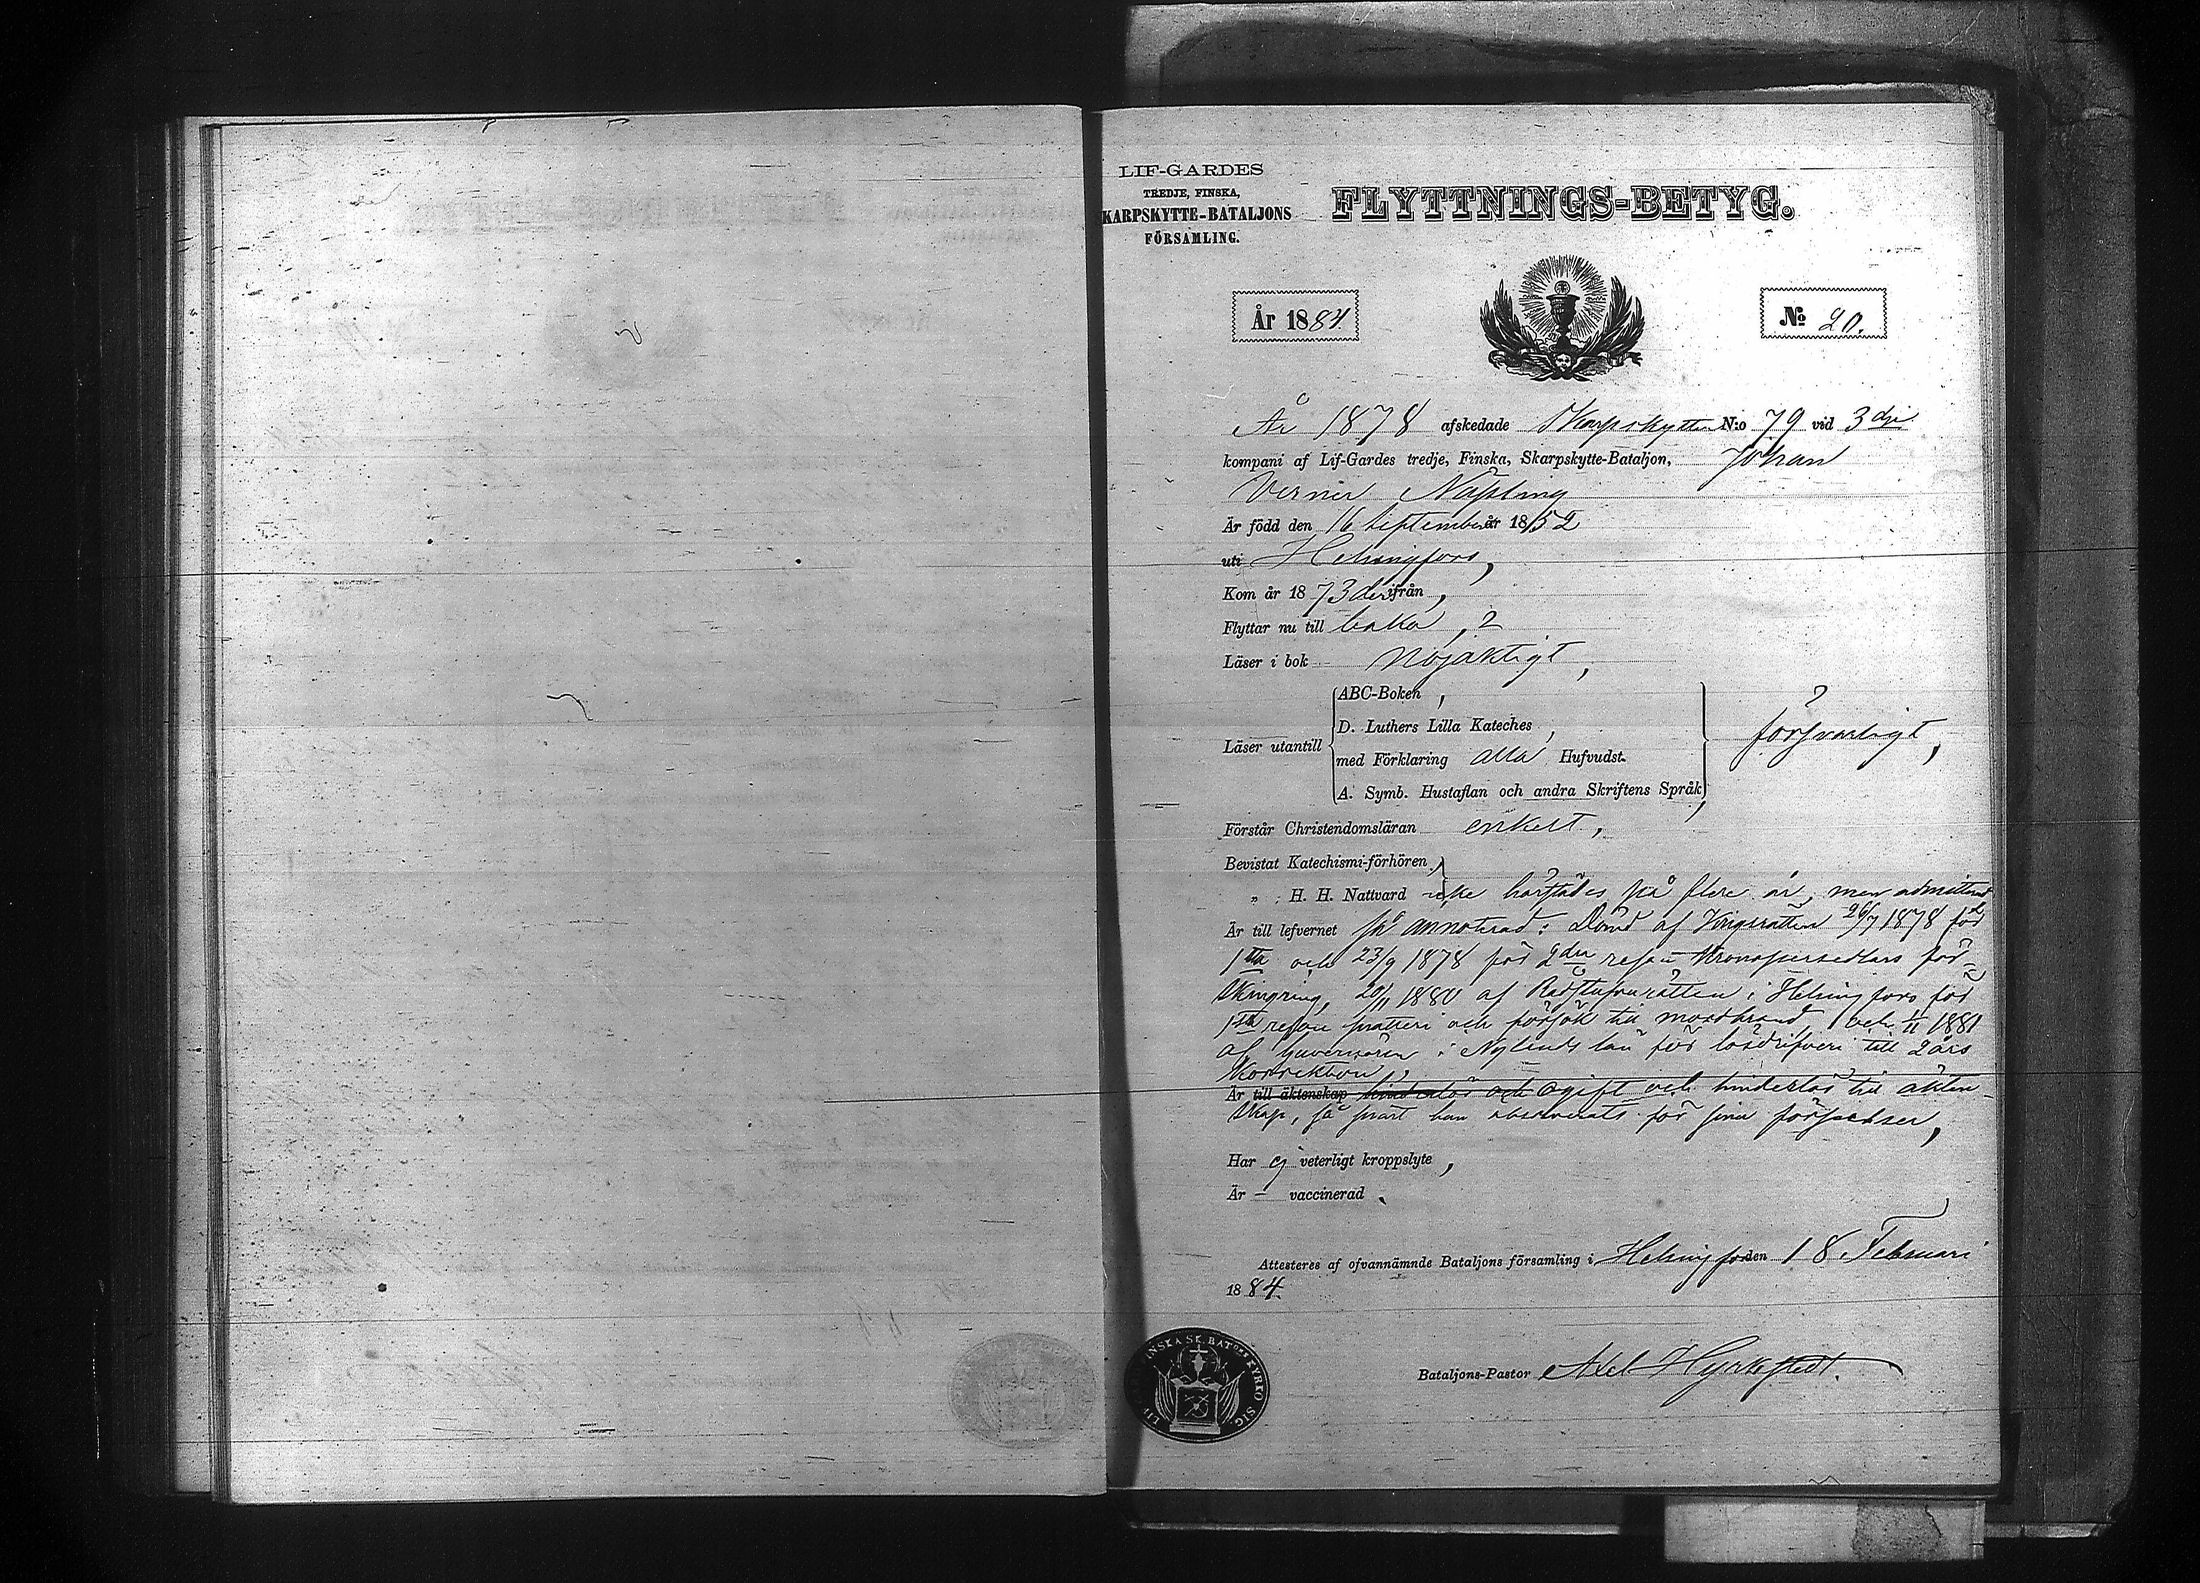 LIF-GARDES
TREDJE, FINSKA,
KARPSKYTTE-BATALJONS
FÖRSAMLING.
FLYTTNINGS-BETYG.
År 1884.
No 20.
År 1878 afskedade Skarpskytten N:o 79 vid 3dje
kompani af Lif-Gardes tredje, Finska, Skarpskytte-Bataljon, Johan
Verner
Är född den 16 September år 1852
uti Helsingfors,
Kom år 1873 derifrån,
Flyttar nu till baka,
Läser i bok nöjaktigt,
ABC-Boken,
D. Luthers Lilla Kateches,
Läser utantill
med Förklaring alla Hufvudst.
A. Symb. Hustaflan och andra Skriftens Språk,
försvarligt,
Förstår Christendomsläran enkelt,
Bevistat Katechismi-förhören,
„ H. H. Nattvard icke härstädes på flere år, men admitterad
Är till lefvernet så annoterad: Dömd af Krigsrätten 26/7 1878 för
1sta och 23/9 1878 för 2dra resan Kronopersedlars för-
skingring, 20/11 1880 af Rådstufvurätten i Helsingfors för
1sta resan snatteri och försök till mordbrand och 1/11 1881
af Guvernören i Nylands län för lösdrifveri till 2 års
Korrektion,
Är till äktenskap hinderlös och ogift och hinderlös till äkten-
skap, så snart han absolverats för sina förseelser,
Har ej veterligt kroppslyte,
Är — vaccinerad
Attesteras af ofvannämnde Bataljons församling i Helsingfors den 18 Februari
1884.
Bataljons-Pastor Axel Hyrkstedt.
FINSKA SK. BAT:NS KYRKO SIG.
LIF